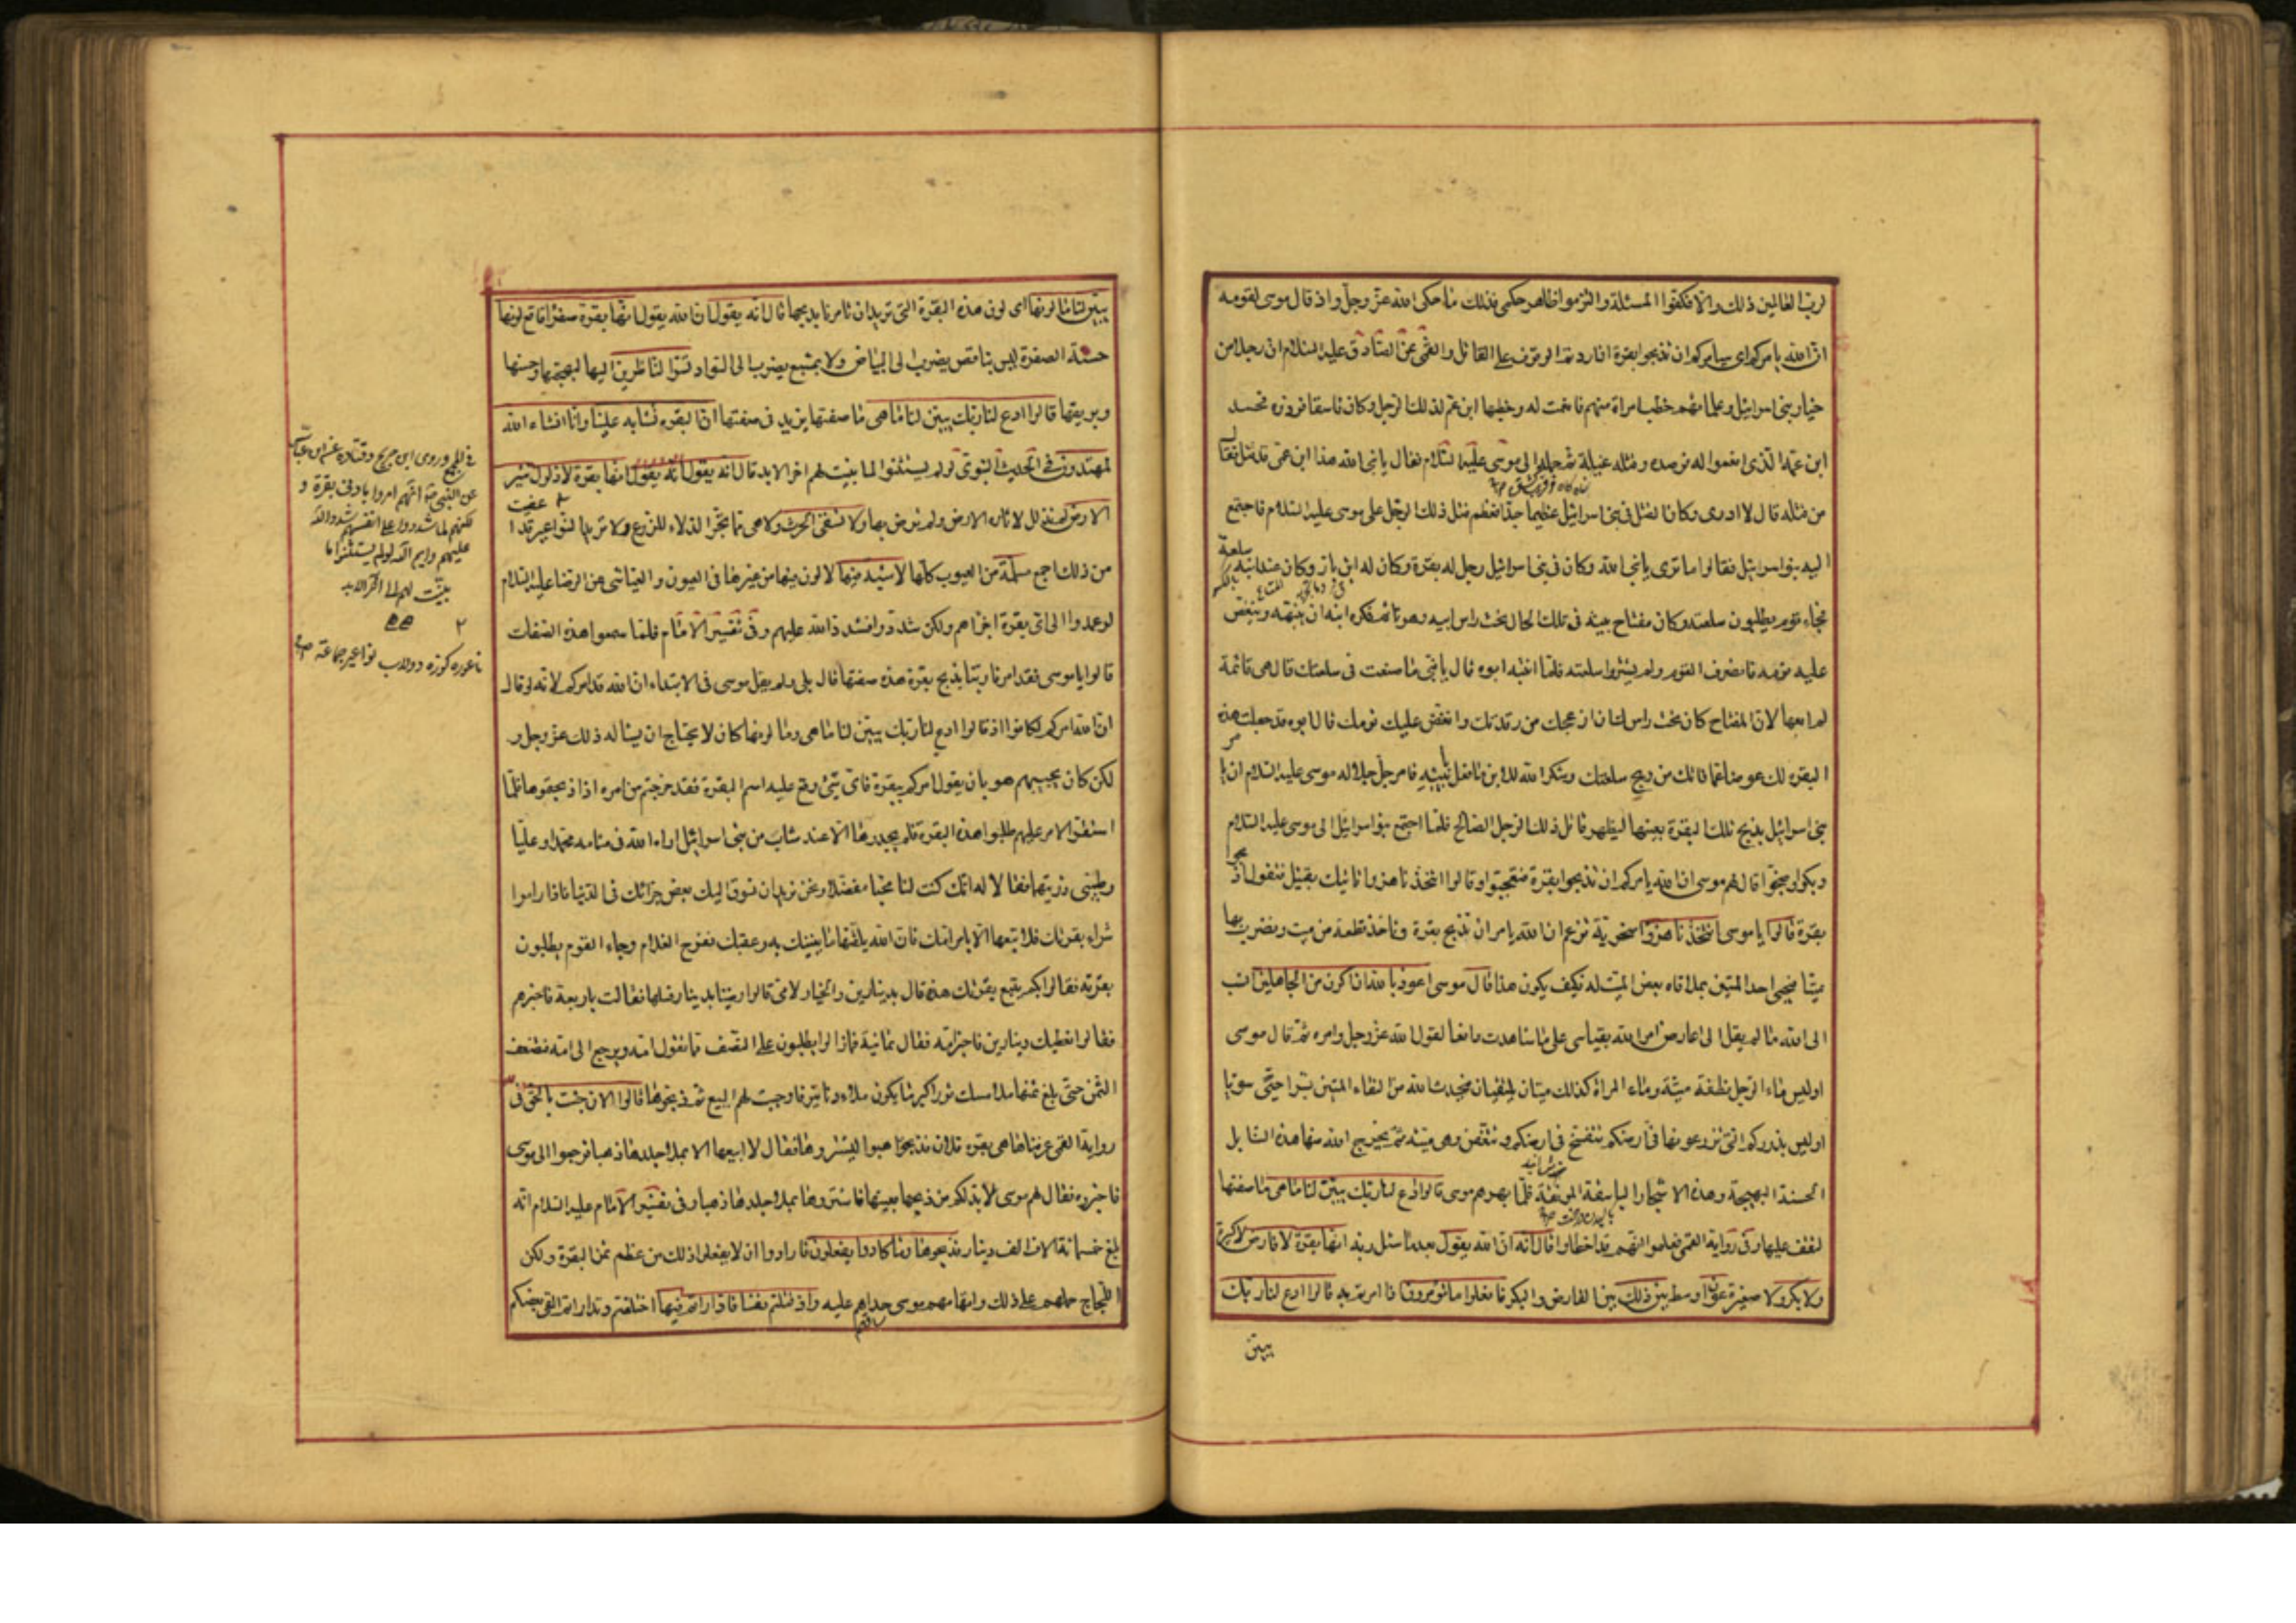 لرب العالمين ذلك والا فكفوا المسئلة والتزموا ظاهر حكمي فذلك ما حكى الله عز وجل واذ قال موسى لقومه
ان الله يامركم اي سيامركم ان تذبحوا بقرة ان اردتم الوقوف على القاتل والقمي عن الصادق عليه السلام ان رجلا من
خيار بني اسرائيل وعلمائهم خطب امراة منهم فانعمت له وخطبها ابن عم لذلك الرجل وكان فاسقا فردوه فحسد
ابن عمه الذي انعموا له فرصده وقتله غيلة ثم حمله الى موسى عليه السلام فقال يا نبي الله هذا ابن عمي قد قتل فقال
من قتله قال لا ادري وكان القتل في بني اسرائيل عظيما جدا فعظم قتل ذلك الرجل على موسى عليه السلام فاجتمع
اليه بنو اسرائيل فقالوا ما ترى يا نبي الله وكان في بني اسرائيل رجل له بقرة وكان له ابن بار وكان عند ابنه سلعة
فجاء قوم يطلبون سلعته وكان مفتاح بيته في تلك الحال تحت راس ابيه وهو نائم فكره ابنه ان ينبهه وينغص
عليه نومه فانصرف القوم ولم يشتروا سلعته فلما انتبه ابوه قال يا بني ما صنعت في سلعتك قال هي قائمة
لم ابعها لان المفتاح كان تحت راسك فان ازعجك من رقدتك وانغص عليك نومك قال ابوه قد جعلت هذه
البقرة لك عوضا عما فاتك من ربح سلعتك وشكر الله للابن ما فعل بابيه فامر جل جلاله موسى عليه السلام ان يامر
بني اسرائيل بذبح تلك البقرة بعينها ليظهر قاتل ذلك الرجل الصالح فلما اجتمع بنو اسرائيل الى موسى عليه السلام
وبكوا وضجوا قال لهم موسى ان الله يامركم ان تذبحوا بقرة فتعجبوا وقالوا اتتخذنا هزوا ناتيك بقتيل فتقول اذبحوا
بقرة قالوا يا موسى اتتخذنا هزوا سخرية تزعم ان الله يامر ان تذبح بقرة وناخذ قطعة من ميت ونضرب بها
ميتا فيحيى احد الميتين بملاقاة بعض الميت له فكيف يكون هذا قال موسى اعوذ بالله ان اكون من الجاهلين انسب
الى الله ما لم يقل لي اعارض امر الله بقياسي على ما شاهدت دافعا لقول الله عز وجل وامره ثم قال موسى
اوليس ماء الرجل نطفة ميتة وماء المراة كذلك ميتان يلتقيان فيحدث الله من التقاء الميتين بشرا حيا سويا
اوليس بذوركم التي تزرعونها في ارضكم تتفسخ في ارضكم وتتعفن وهي ميتة ثم يخرج الله منها هذه السنابل
الحسنة البهيجة وهذه الاشجار الباسقة المونقة فلما بهرهم موسى قالوا ادع لنا ربك يبين لنا ما هي ما صفتها
لنقف عليها وفي رواية القمي فعلموا انهم قد اخطاوا قال انه ان الله يقول بعد ما سئل ربه انها بقرة لا فارض لا كبيرة
ولا بكر ولا صغيرة عوان وسط بين ذلك بين الفارض والبكر فافعلوا ما تؤمرون اذا امرتم به قالوا ادع لنا ربك
يبين
يبين لنا ما لونها اي لون هذه البقرة التي تريد ان تامرنا بذبحها قال انه يقول ان الله يقول انها بقرة صفراء فاقع لونها
حسنة الصفرة ليس بناقص يضرب الى البياض ولا بمشبع يضرب الى السواد تسر الناظرين اليها لبهجتها وحسنها
وبريقها قالوا ادع لنا ربك يبين لنا ما هي ما صفتها يزيد في صفتها ان البقر تشابه علينا وانا ان شاء الله
لمهتدون في الحديث النبوي لو لم يستثنوا لما بينت لهم اخر الابد قال انه يقول انه يقول انها بقرة لا ذلول تثير
الارض لم تذلل لاثارة الارض ولم ترض بها ولا تسقي الحرث ولا هي مما تجر الدلاء للزرع ولا تدير النواعير قد اعفيت
من ذلك اجمع مسلمة من العيوب كلها لا شية فيها لا لون فيها من غيرها في العيون والعياشي عن الرضا عليه السلام
لو عمدوا الى اي بقرة اجزاهم ولكن شددوا فشدد الله عليهم وفي تفسير الامام فلما سمعوا هذه الصفات
قالوا يا موسى فقد امرنا ربنا بذبح بقرة هذه صفتها قال بلى ولم يقل موسى في الابتداء ان الله قد امركم لانه لو قال
ان الله امركم لكانوا اذ قالوا ادع لنا ربك يبين لنا ما هي وما لونها كان لا يحتاج ان يساله ذلك عز وجل و
لكن كان يجيبهم هو بان يقول امركم ببقرة فاي شيء وقع عليه اسم البقرة فقد خرجتم من امره اذا ذبحتموها فلما
استقر الامر عليهم طلبوا هذه البقرة فلم يجدوها الا عند شاب من بني اسرائيل اراه الله في منامه محمدا وعليا
وطيبي ذريتهما فقالا له انك كنت لنا محبا مفضلا ونحن نريد ان نسوق اليك بعض جزائك في الدنيا فاذا راموا
شراء بقرتك فلا تبعها الا بامر امك فان الله يلقنها ما يغنيك به وعقبك ففرح الغلام وجاء القوم يطلبون
بقرته فقالوا بكم تبيع بقرتك هذه قال بدينارين والخيار لامي قالوا رضينا بدينار فسالها فقالت باربعة فاخبرهم
فقالوا نعطيك دينارين فاخبر امه فقال ثمانية فما زالوا يطلبون على النصف مما تقول امه ويرجع الى امه فتضعف
الثمن حتى بلغ ثمنها ملاء مسك ثور اكبر ما يكون ملاءه دنانير فاوجبت لهم البيع ثم ذبحوها قالوا الان جئت بالحق في
رواية القمي عرفناها هي بقرة فلان فذهبوا ليشتروها فقال لا ابيعها الا بملاء جلدها ذهبا فرجعوا الى موسى
فاخبروه فقال لهم موسى لا بد لكم من ذبحها بعينها فاشتروها بملاء جلدها ذهبا وفي تفسير الامام عليه السلام انه
بلغ خمسمائة الاف الف دينار فذبحوها وما كادوا يفعلون فارادوا ان لا يفعلوا ذلك من عظم ثمن البقرة ولكن
اللجاج حملهم على ذلك واتهامهم موسى حداهم عليه واذ قتلتم نفسا فاداراتم فيها اختلفتم وتداراتم القى بعضكم
في المجمع وروى ابن جريج وقتادة عن ابن عباس
عن النبي ص انهم امروا بادنى بقرة و
لكنهم لما شددوا على انفسهم شدد الله
عليهم وايم الله لو لم يستثنوا ما
بينت لهم الى اخر الابد
ناعوره كوزه ودولاب نواعير جماعة